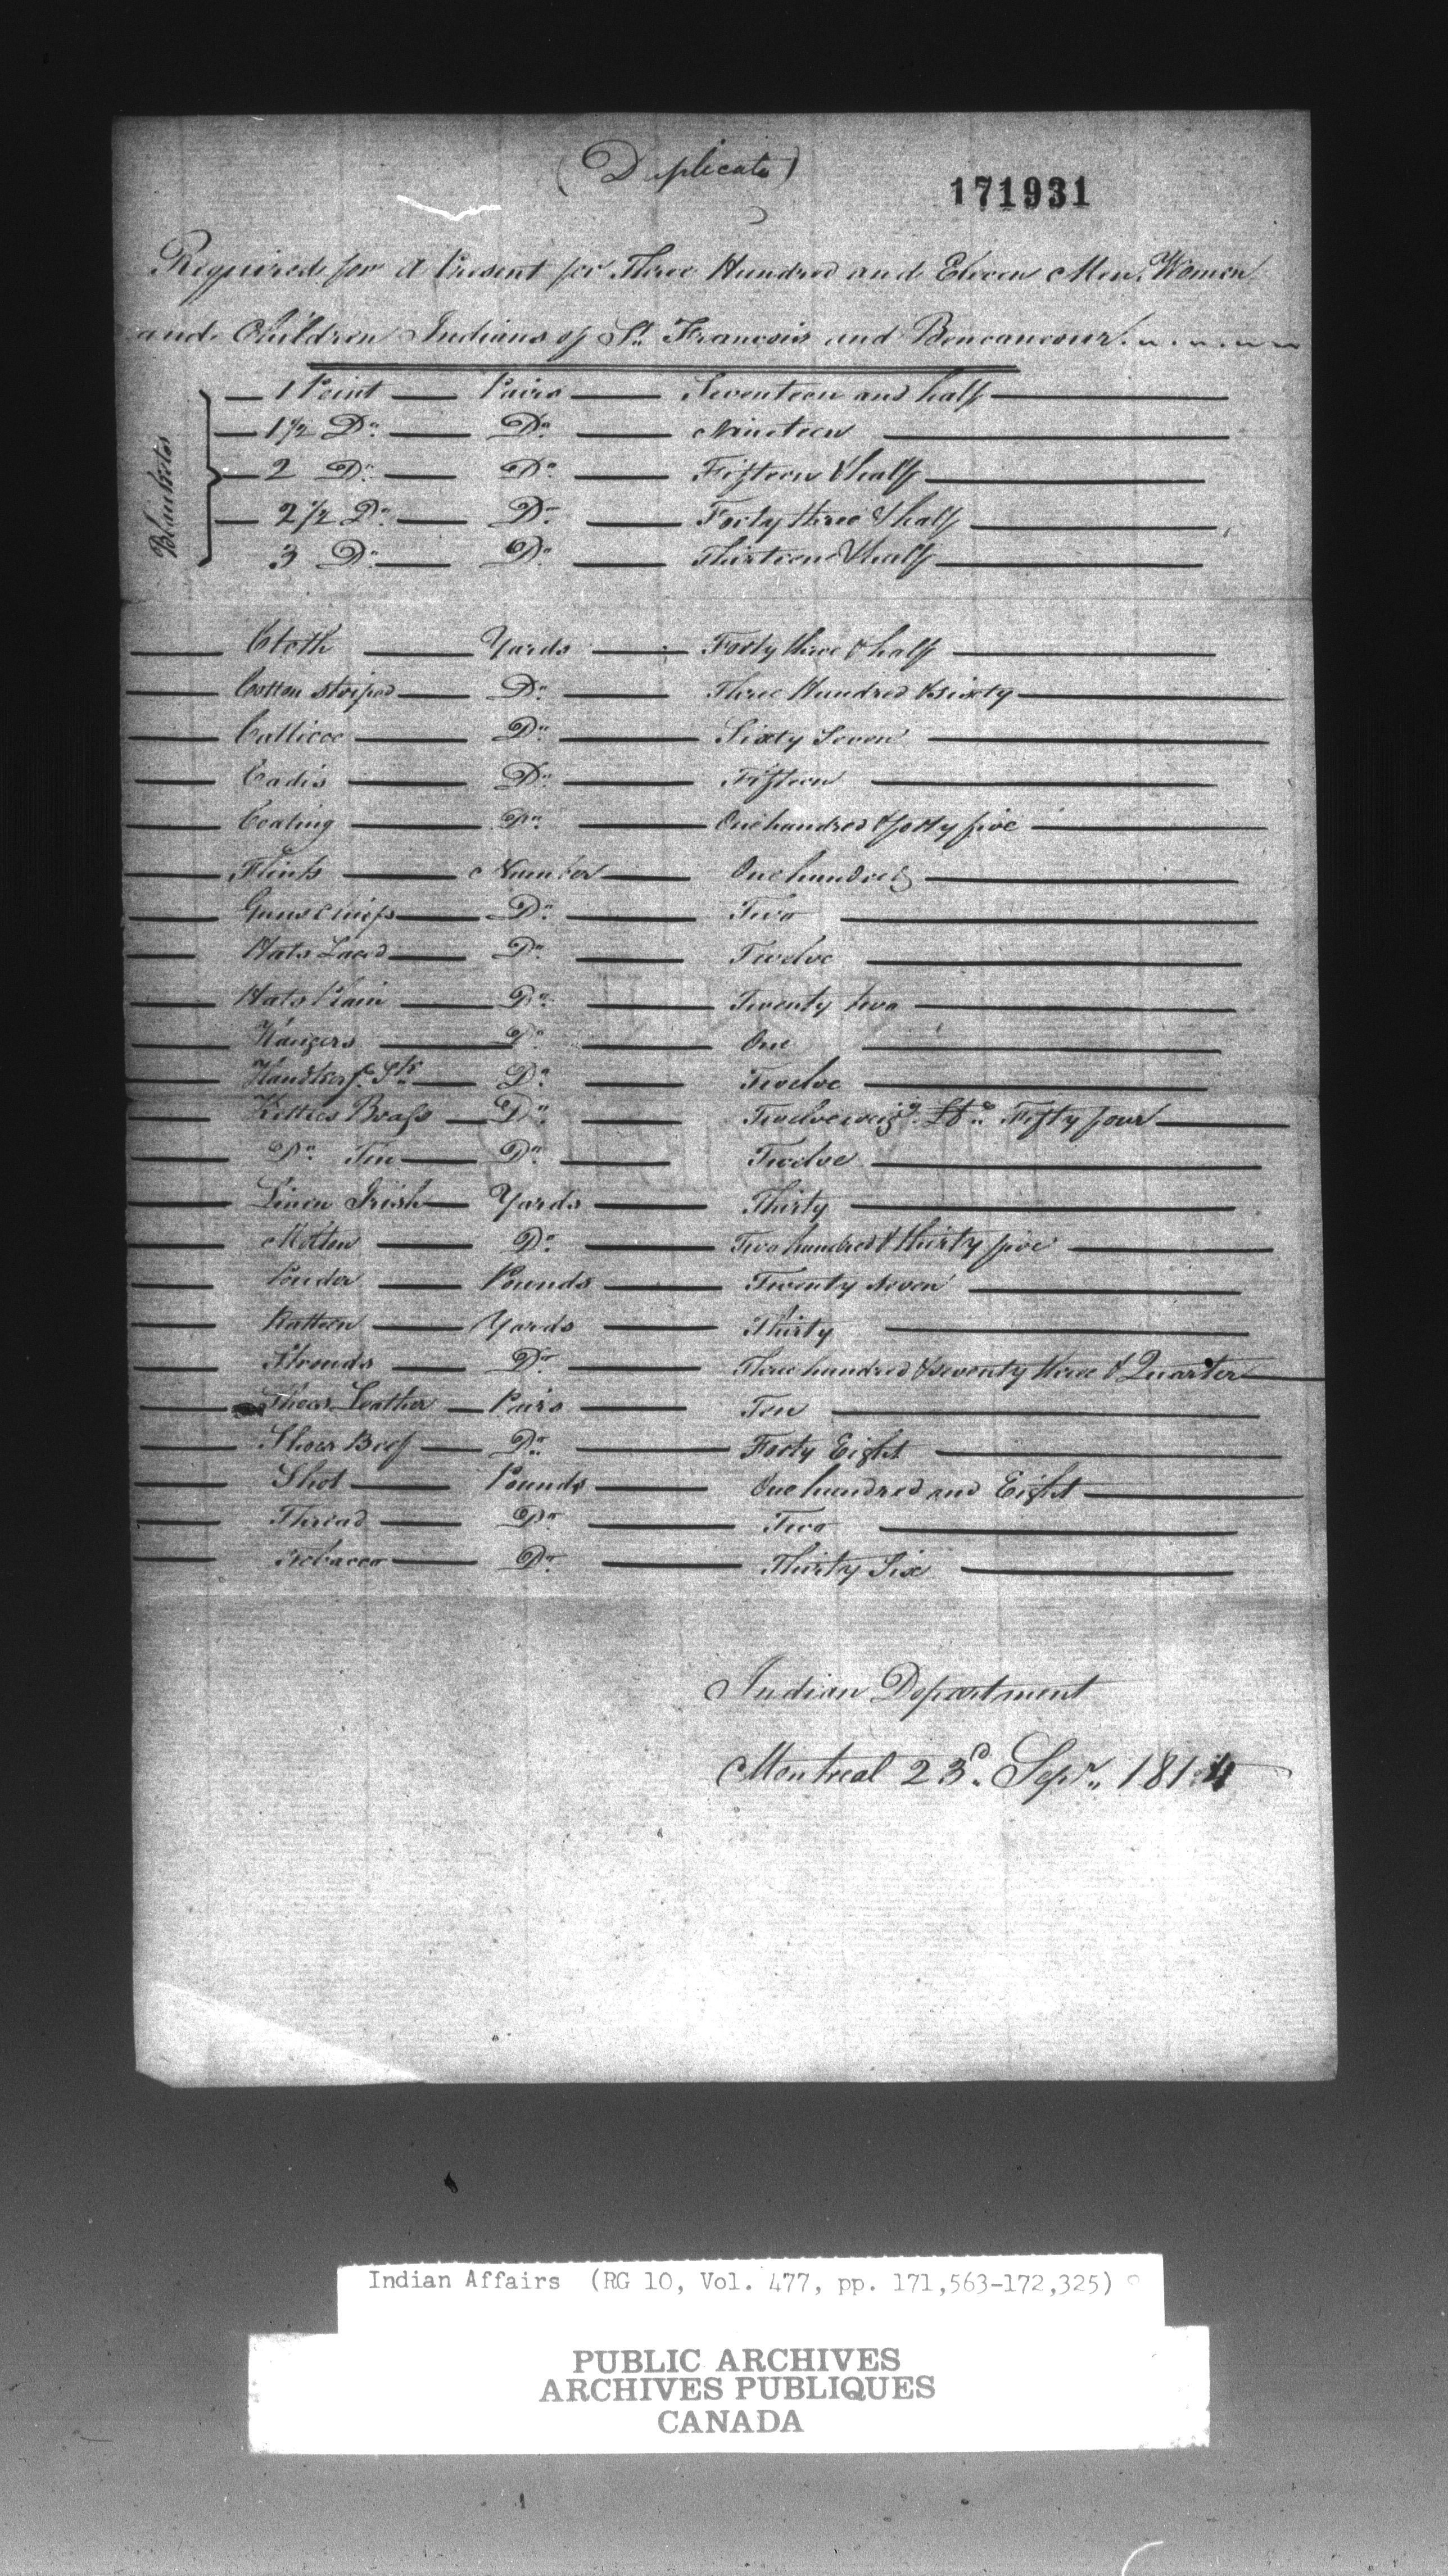 (Duplicate)
171931
Required for A Present for Three Hundred and Eleven Men, Women
and Children Indians of St. Francois and Bencancour
Blankets
1 Point Pairs Seventeen and half
1 1/2 Do. Do. Nineteen
2 Do. Do. Fifteen & half
2 1/2 Do. Do. Forty three & half
3 Do. Do. Thirteen & half
Cloth Yards Forty three & half
Cotton striped Do. Three Hundred & sixty
Callicoe Do. Sixty Seven
Cadis Do. Fifteen
Coating Do. One hundred & forty five
Flints Number One hundred
Guns Chiefs Do. Two
Hats Laced Do. Twelve
Hats Plain Do. Twenty two
Hangers Do. One
Handkerfs. Slk Do. Twelve
Kettles Brass Do. Twelve weigg. lbs. Fifty four
Do. Tin Do. Twelve
Linen Irish Yards Thirty
Molton Do. Two hundred & thirty five
Pouder Pounds Twenty seven
Ratteen Yards Thirty
Strouds Do. Three hundred & seventy three & Quarter
Shoes Leather Pairs Ten
Shoes Beef Do. Forty Eight
Shot Pounds One hundred and Eight
Thread Do. Two
Tobacco Do. Thirty Six
Indian Department
Montreal 23d. Sepr. 1814
Indian Affairs (RG 10, Vol. 477, pp. 171,563-172,325)
PUBLIC ARCHIVES
ARCHIVES PUBLIQUES
CANADA